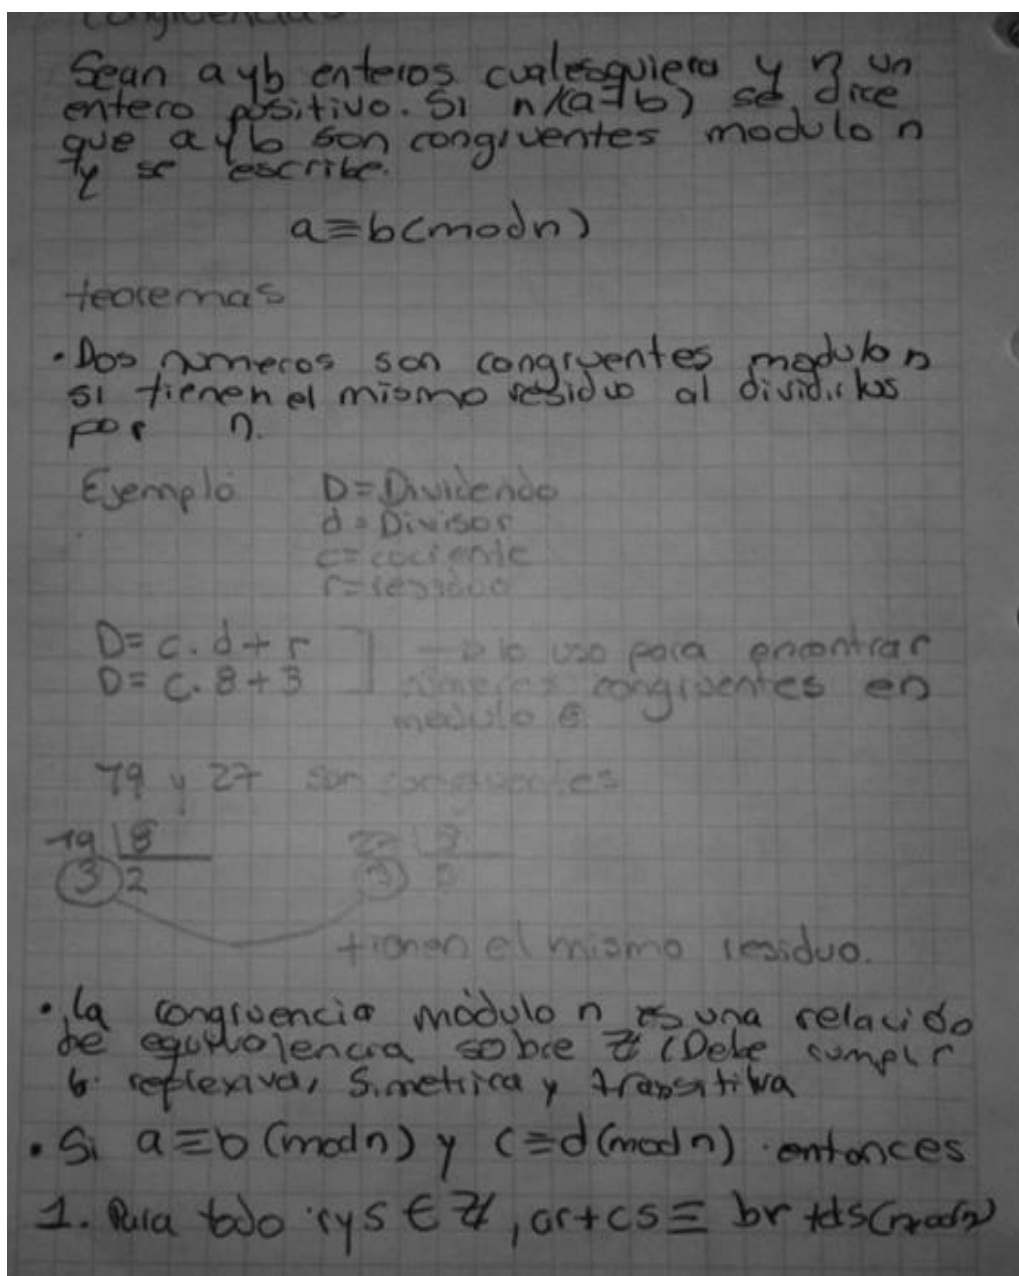 Congruencias
Sean a y b enteros cualesquiera y n un
entero positivo. Si n/(a-b) se dice
que a y b son congruentes modulo n
y se escribe.
a≡b(modn)
teoremas
• Dos numeros son congruentes modulo n
si tienen el mismo residuo al dividirlos
por n.
Ejemplo D=Dividendo
d=Divisor
c=cociente
r=residuo
D= c.d+r → lo uso para encontrar
D= c.8+3 números congruentes en
modulo 8
19 y 27 son congruentes
19 |8 27 |8
3 2 3 3
tienen el mismo residuo.
• la congruencia módulo n es una relacido
de equivalencia sobre ℤ (Debe cumplir
reflexiva, Simetrica y transitiva
• Si a≡b (modn) y c≡d(modn) entonces
1. Para todo r y s ∈ ℤ, ar+cs ≡ br+ds(modn)